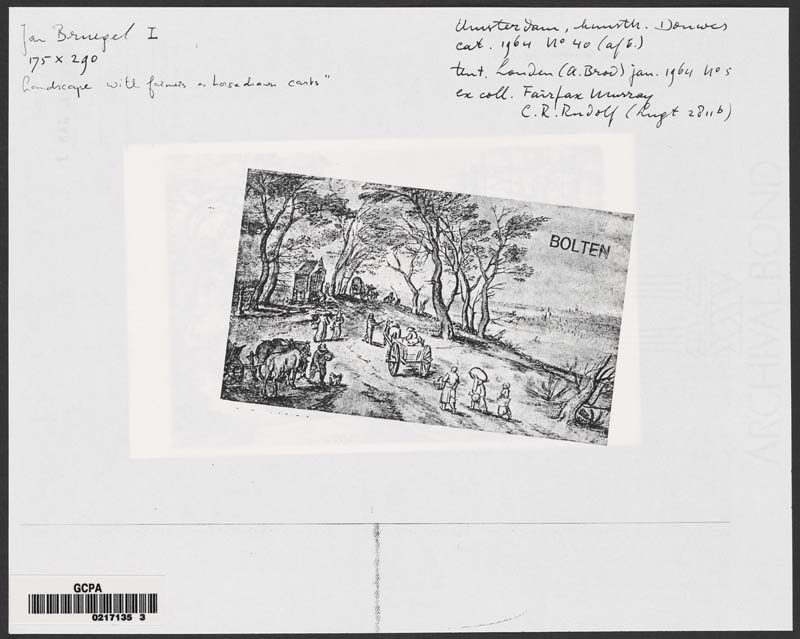 Jan Bruegel I
175 x 290
Landscape with farmers & horsedrawn carts"
Amsterdam, kunsth. Douwes
cat. 1964 No 40 (afb.)
tent. Londen (A. Brod) jan. 1964 No 5
ex coll. Fairfax Murray
C.R. Rudolf (Lugt 2811b)
BOLTEN
ARCHIVAL BOND
GCPA
0217135 3